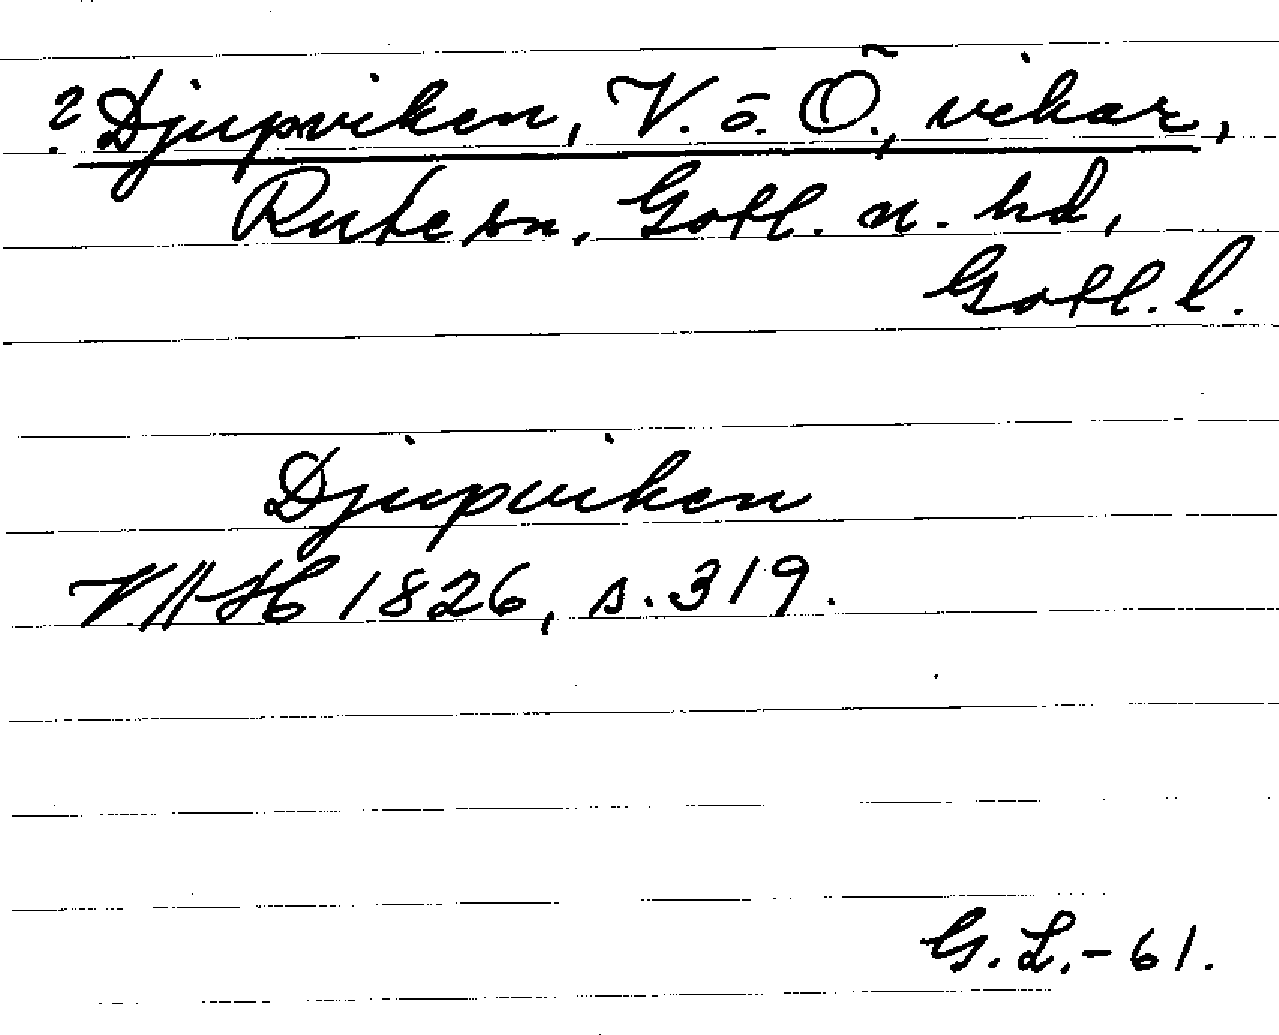 ? Djupviken, V. o. Ö., vikar,
Rute sn, Gotl. n. hd,
Gotl. l.
Djupviken
VAH 1826, s. 319.
G. L. - 61.